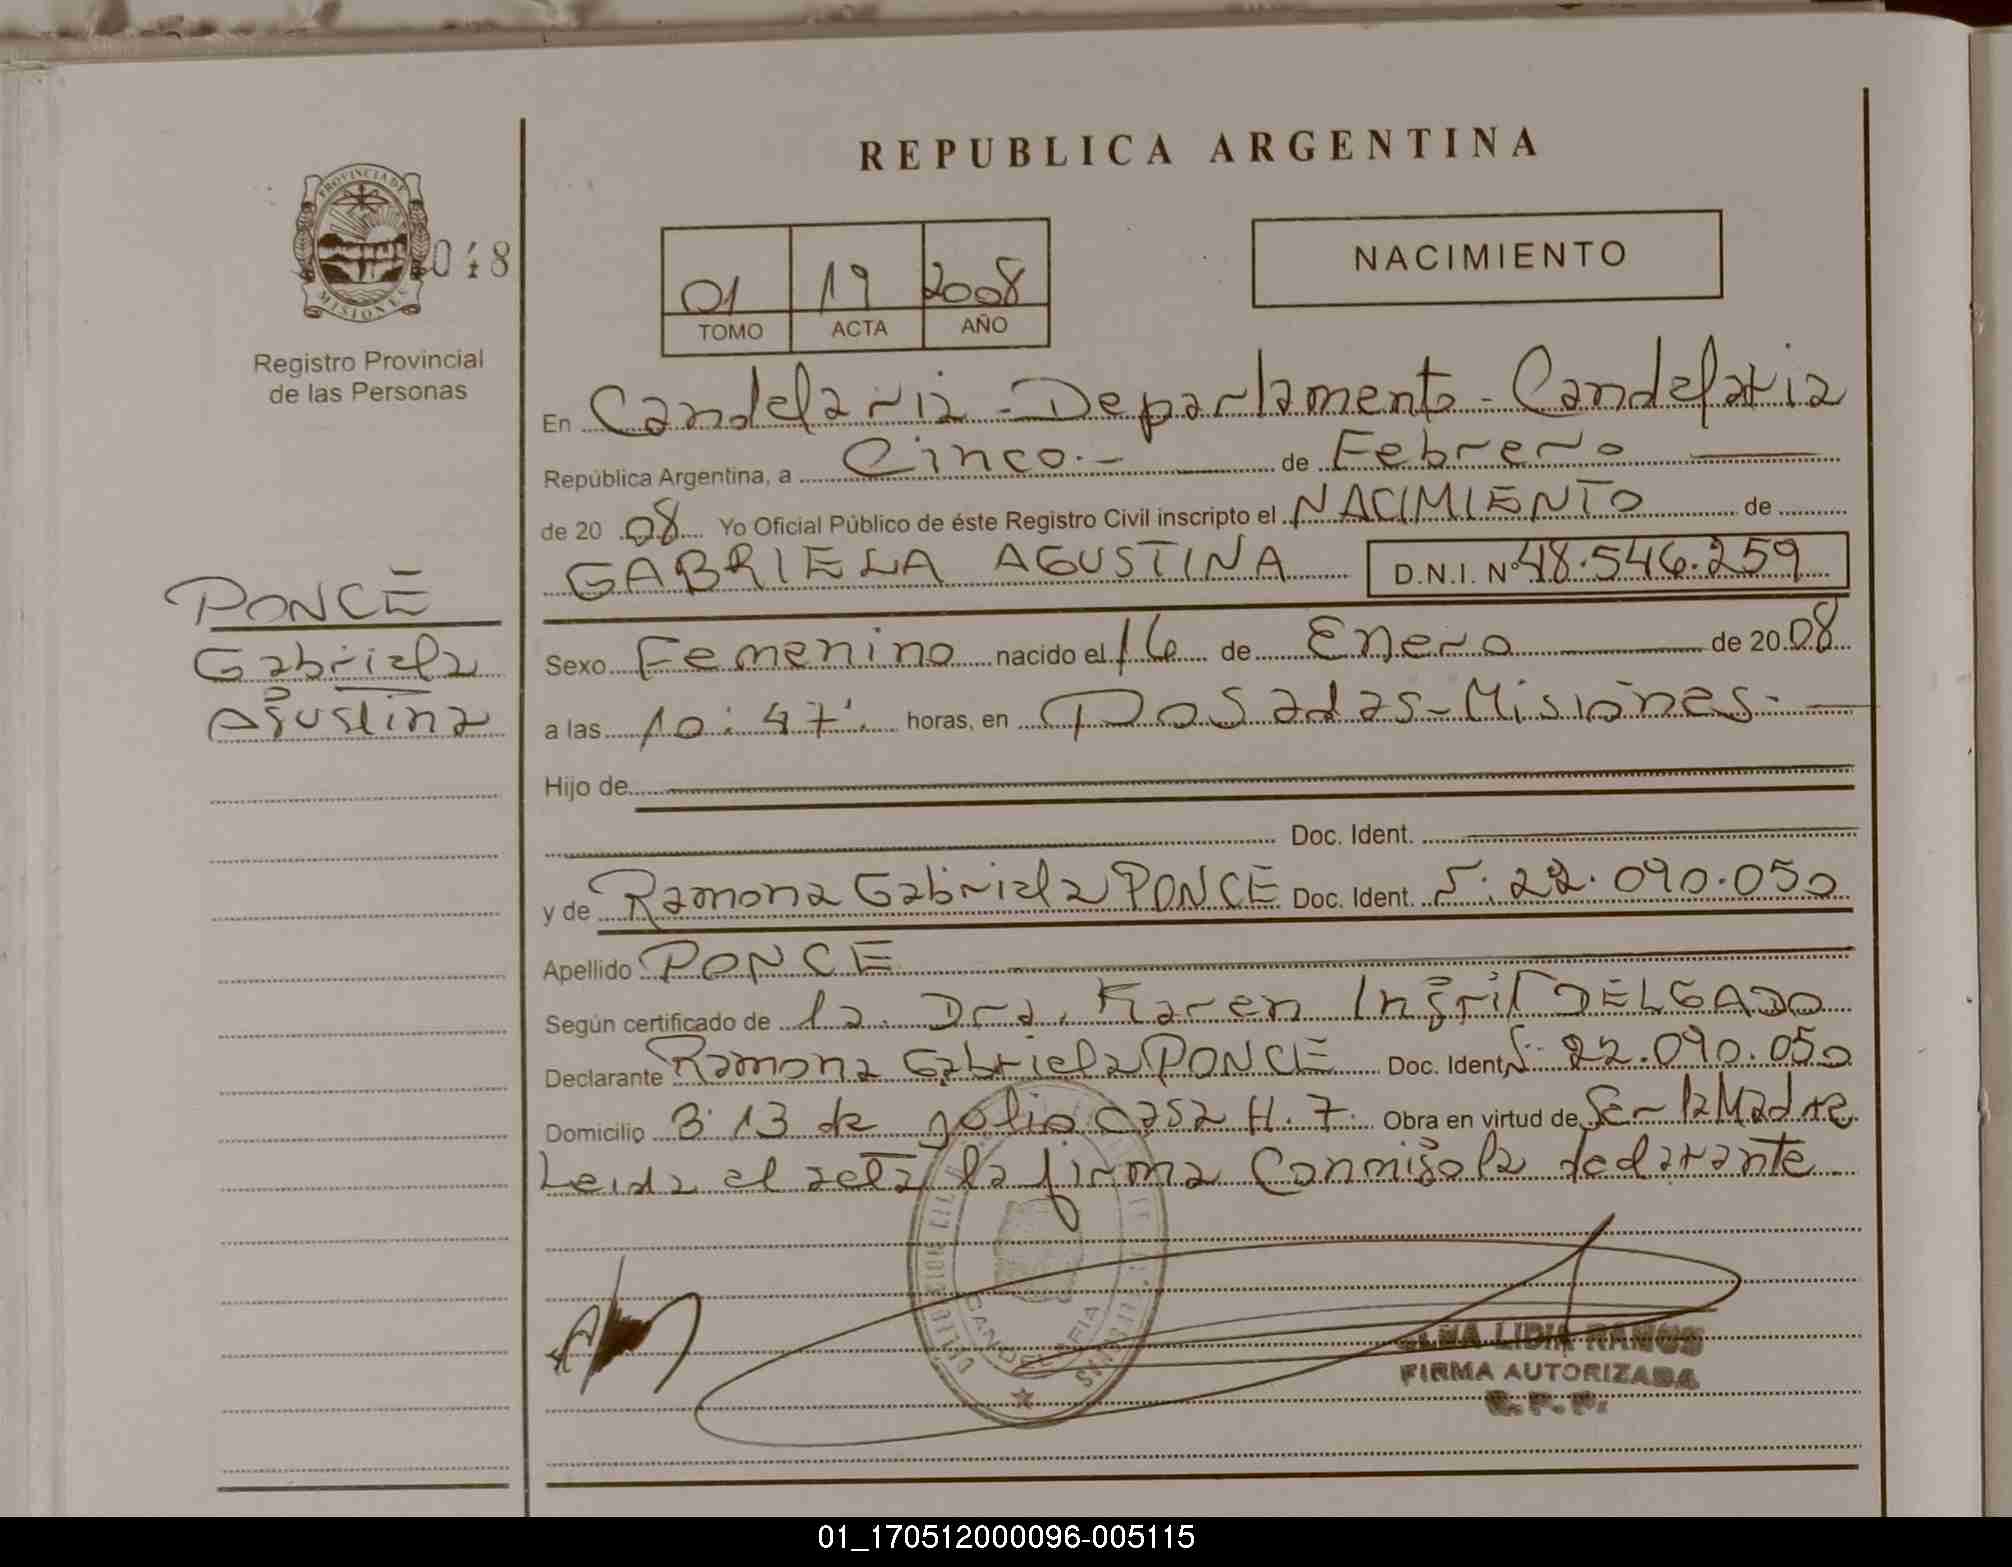 REPUBLICA ARGENTINA
PROVINCIA DE
MISIONES
048
Registro Provincial
de las Personas
01 19 2008
TOMO ACTA AÑO
NACIMIENTO
En Candelaria - Departamento - Candelaria
República Argentina, a Cinco.- de Febrero
de 20 08 Yo Oficial Público de éste Registro Civil inscripto el NACIMIENTO de
GABRIELA AGUSTINA D.N.I. Nº 48.546.259
PONCE
Gabriela
Agustina
Sexo Femenino nacido el 16 de Enero de 20 08
a las 10:47'. horas, en Posadas - Misiones.
Hijo de
Doc. Ident.
y de Ramona Gabriela PONCE Doc. Ident. 22.090.050
Apellido PONCE
Según certificado de la Dra. Karen Ingrit DELGADO
Declarante Ramona Gabriela PONCE Doc. Ident. 22.090.050
Domicilio B: 13 de Julio casa H. 7. Obra en virtud de Ser la Madre
Leida el acta la firma Conmigo la declarante
CANDELARIA
LIDIA RAMOS
FIRMA AUTORIZADA
R. P. P.
01_170512000096-005115